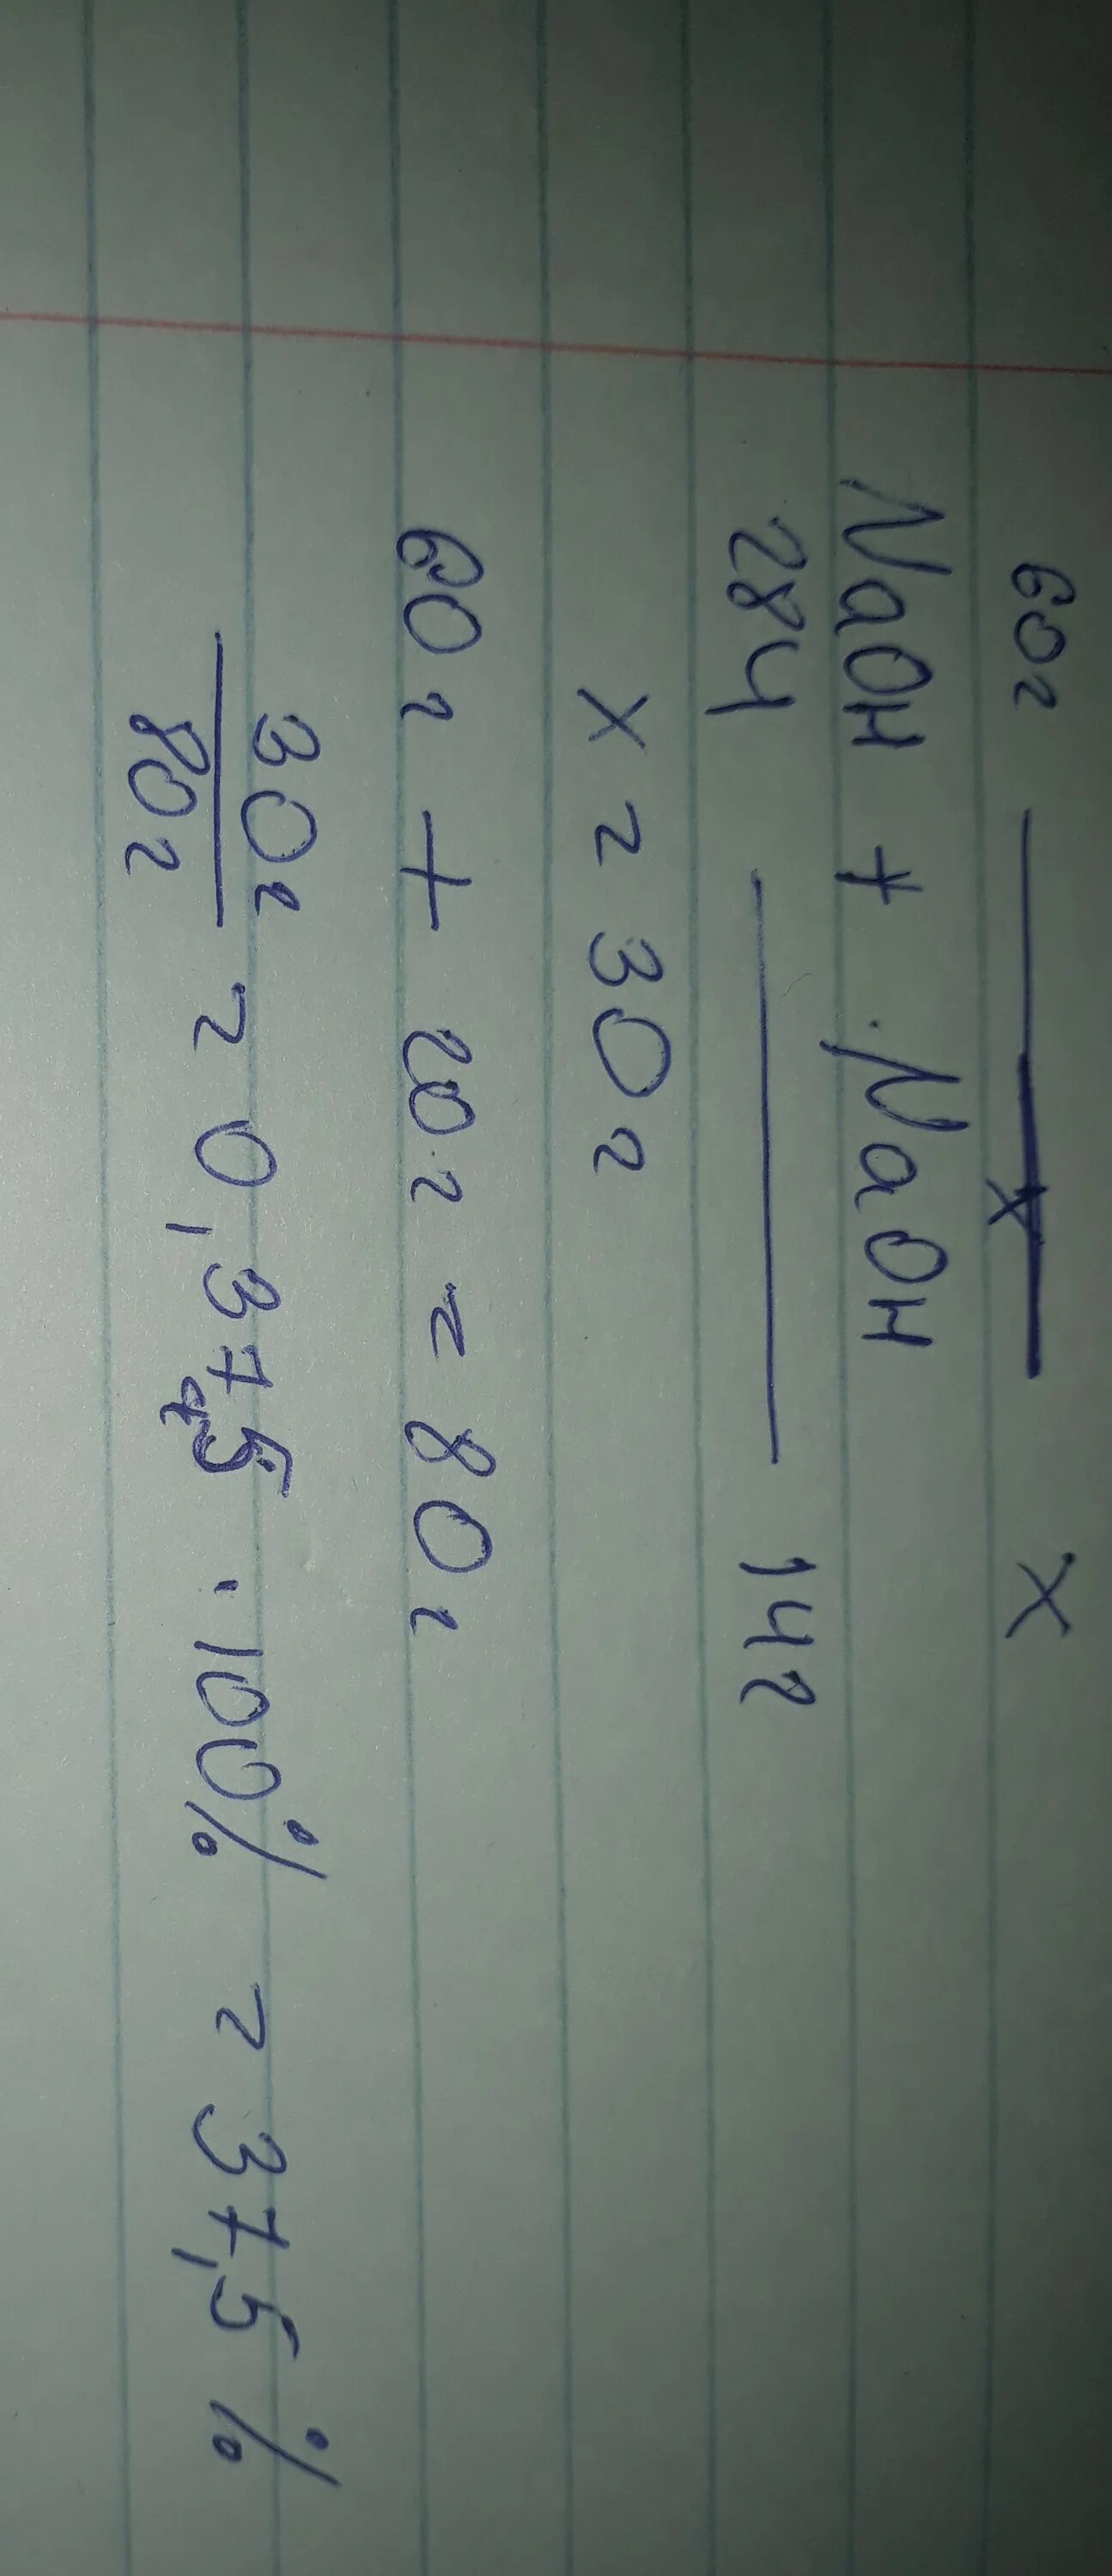 60г — x
NaOH + NaOH
284 — 142
x = 30г
60г + 20г = 80г
30г/80г = 0,375 · 100% = 37,5%